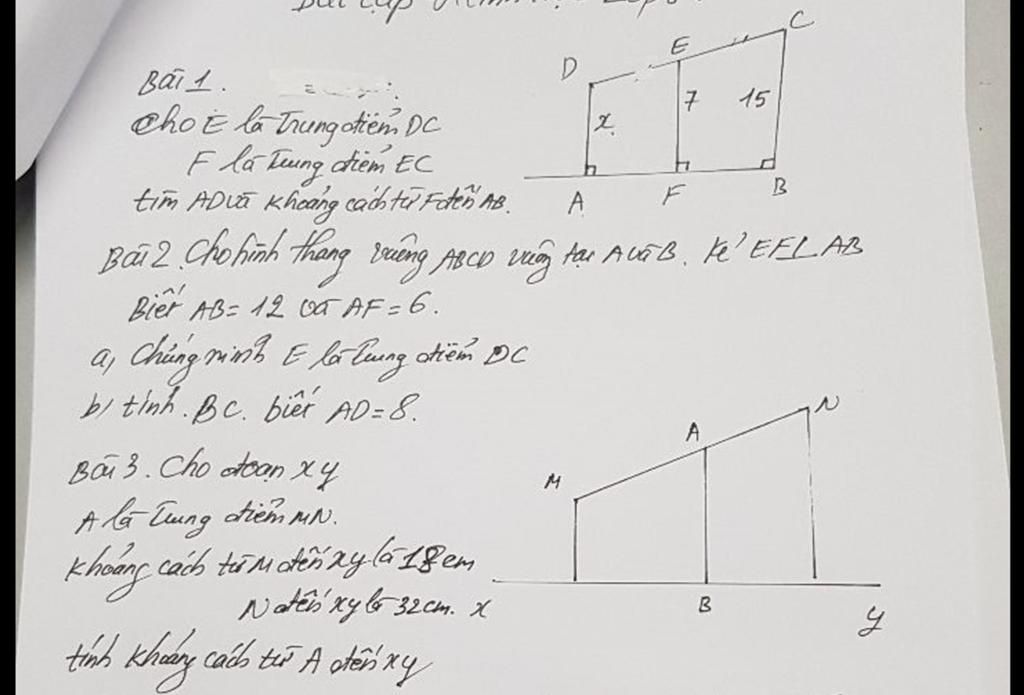 Bài 1.
Cho E là Trung điểm DC
F là Trung điểm EC
tìm AD và khoảng cách từ F đến AB.
D
E
C
x
7
15
A
F
B
Bài 2. Cho hình thang vuông ABCD vuông tại A và B. kẻ EF⊥AB
Biết AB = 12 và AF = 6.
a, Chứng minh E là Trung điểm DC
b, tính BC. biết AD = 8.
Bài 3. Cho đoạn xy
A là Trung điểm MN.
Khoảng cách từ M đến xy là 18cm
N đến xy là 32cm.
tính khoảng cách từ A đến xy
M
A
N
x
B
y